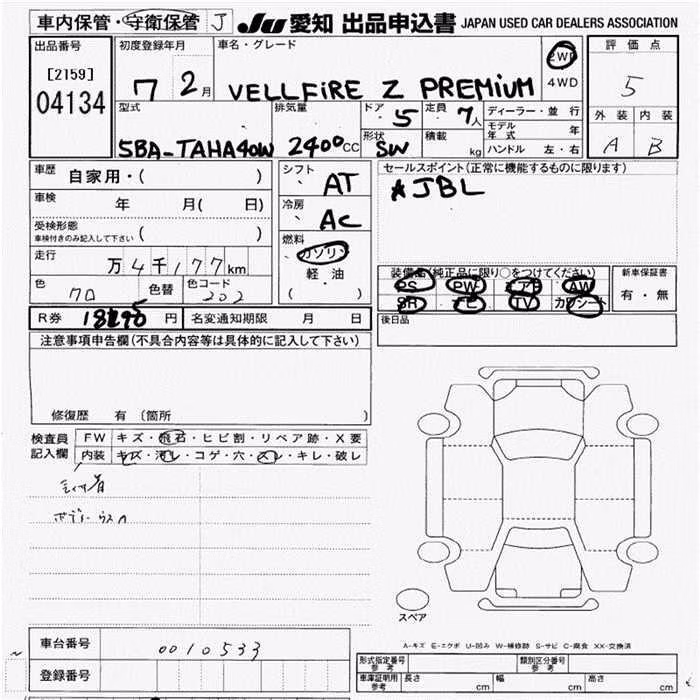 車内保管・守衛保管 J JU 愛知 出品申込書 JAPAN USED CAR DEALERS ASSOCIATION
出品番号 初度登録年月 車名・グレード 評価点
[2159] 7 2月 VELLFiRE Z PREMiUM 2WD 5
04134 4WD
型式 排気量 ドア 5 定員 7人 ディーラー・並行 外装 内装
モデル年式 年
5BA-TAHA40W 2400cc 形状 SW 積載 kg ハンドル 左・右 A B
車歴 自家用・( ) シフト AT セールスポイント(正常に機能するものに限ります)
車検 年 月( 日) 冷房 AC ★JBL
受検形態
車検付きのみ記入して下さい ( )
燃料 ガソリン
走行 万4千177km 軽・油 装備品(純正品に限り○をつけてください) 新車保証書
色 クロ 色替 色コード 202 ( ) PS PW エアB AW 有・無
SR ナビ TV カワシート
R券 円 名変通知期限 月 日 後日品
注意事項申告欄(不具合内容等は具体的に記入して下さい)
修復歴 有 (箇所 )
検査員 FW キズ・飛石・ヒビ割・リペア跡・X要
記入欄 内装 キズ・汚レ・コゲ・穴・スレ・キレ・破レ
ボディーウスA
スペア
車台番号 0010533
A-キズ E-エクボ U-凹み W-補修跡 S-サビ C-腐食 XX-交換済
登録番号 型式指定番号 参考 類別区分番号 参考
車庫証明用 参考 長さ cm 幅 cm 高さ cm